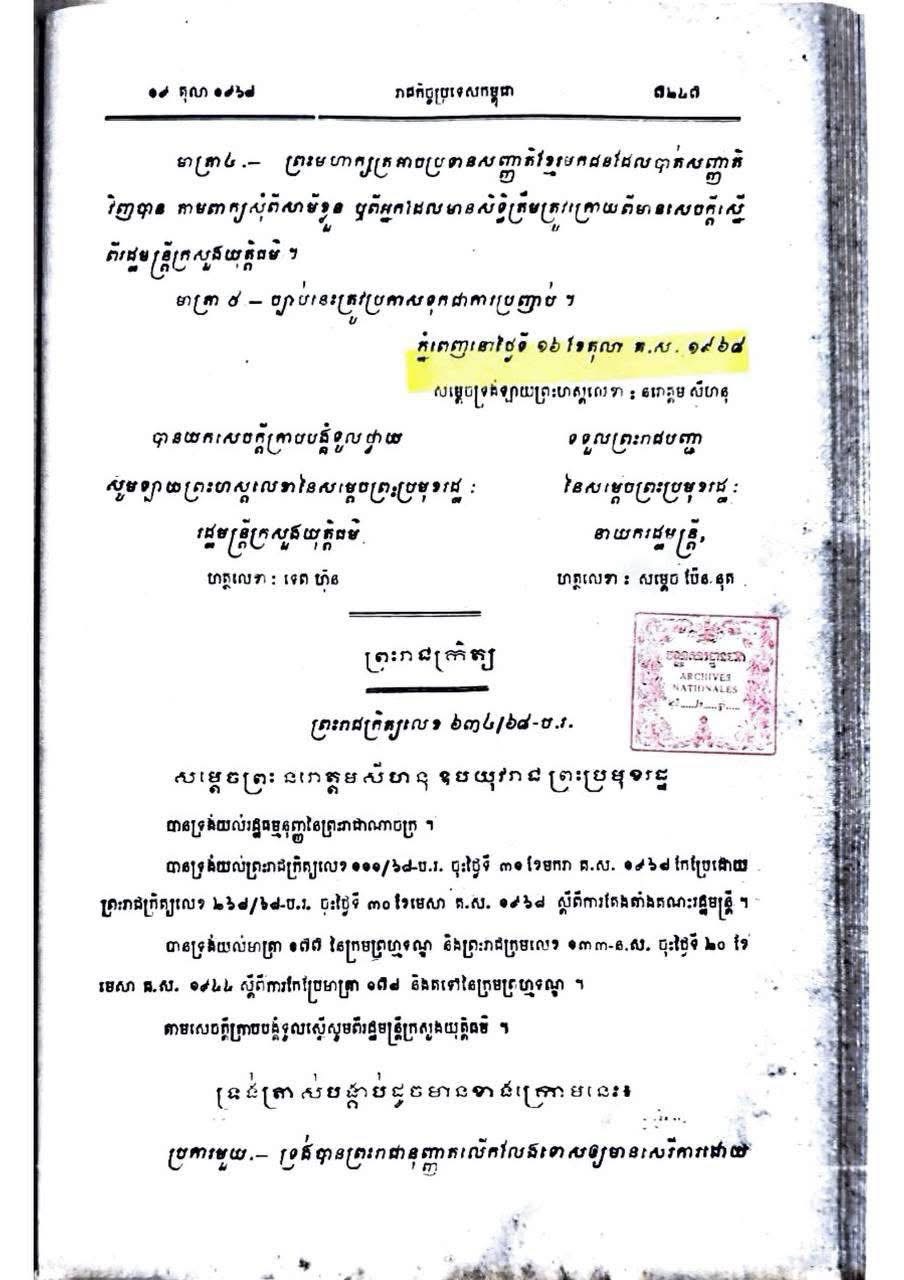 ១៩ តុលា ១៩៦៨ រាជកិច្ចប្រទេសកម្ពុជា ៧២៤៧
មាត្រា៤.— ព្រះមហាក្សត្រអាចប្រទានសញ្ជាតិខ្មែរមកជនដែលបាត់សញ្ជាតិ
វិញបាន តាមពាក្យសុំពីសាមីខ្លួន ឬពីអ្នកដែលមានសិទ្ធិត្រឹមត្រូវក្រោយពីមានសេចក្តីស្នើ
ពីរដ្ឋមន្ត្រីក្រសួងយុត្តិធម៌ ។
មាត្រា ៥ — ច្បាប់នេះត្រូវប្រកាសទុកជាការប្រញាប់ ។
ភ្នំពេញនៅថ្ងៃទី ១៦ ខែតុលា គ.ស. ១៩៦៨
សម្តេចទ្រង់ឡាយព្រះហស្តលេខា : នរោត្តម សីហនុ
បានយកសេចក្តីក្រាបបង្គំទូលថ្វាយ ទទួលព្រះរាជបញ្ជា
សូមឡាយព្រះហស្តលេខានៃសម្តេចព្រះប្រមុខរដ្ឋ : នៃសម្តេចព្រះប្រមុខរដ្ឋ :
រដ្ឋមន្ត្រីក្រសួងយុត្តិធម៌ នាយករដ្ឋមន្ត្រី,
ហត្ថលេខា : ទេព ហ៊ុន ហត្ថលេខា : សម្តេច ប៉ែន.នុត
ព្រះរាជក្រឹត្យ
ARCHIVES
NATIONALES
ព្រះរាជក្រឹត្យលេខ ៦៣៤/៦៨-ប.រ.
សម្តេចព្រះ នរោត្តមសីហនុ ឧបយុវរាជ ព្រះប្រមុខរដ្ឋ
បានទ្រង់យល់រដ្ឋធម្មនុញ្ញនៃព្រះរាជាណាចក្រ ។
បានទ្រង់យល់ព្រះរាជក្រឹត្យលេខ ១១១/៦៨-ប.រ. ចុះថ្ងៃទី ៣១ ខែមករា គ.ស. ១៩៦៨ កែប្រែដោយ
ព្រះរាជក្រឹត្យលេខ ២៦៨/៦៨-ប.រ. ចុះថ្ងៃទី ៣០ ខែមេសា គ.ស. ១៩៦៨ ស្តីពីការតែងតាំងគណះរដ្ឋមន្ត្រី ។
បានទ្រង់យល់មាត្រា ១៧៧ នៃក្រមព្រហ្មទណ្ឌ និងព្រះរាជក្រមលេខ ១៣៣-ន.ស. ចុះថ្ងៃទី ២០ ខែ
មេសា គ.ស. ១៩៤៤ ស្តីពីការកែប្រែមាត្រា ១៧៨ និងតទៅនៃក្រមព្រហ្មទណ្ឌ ។
តាមសេចក្តីក្រាបបង្គំទូលស្នើសូមពីរដ្ឋមន្ត្រីក្រសួងយុត្តិធម៌ ។
ទ្រង់ត្រាស់បង្គាប់ដូចមានខាងក្រោមនេះ៖
ប្រការមួយ.— ទ្រង់បានព្រះរាជានុញ្ញាតលើកលែងទោសឲ្យមានសេរីការដោយ